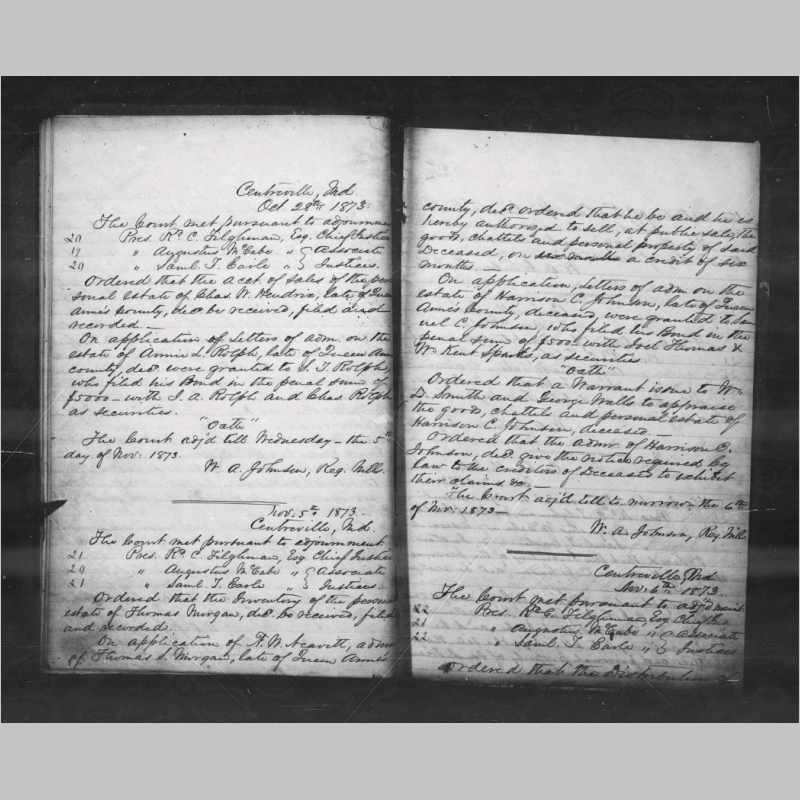 Centreville, Md.
Oct 28th 1873.
The Court met pursuant to adjournm
20 Pres. Rd. C. Tilghman, Esq. Chief Justice
19 " Augustus McCabe " } Associate
20 " Saml. T. Earle " } Justices.
Ordered that the acct of sales of the per
sonal estate of Chas W. Hendrix, late of Queen
Anne's County, decd be received, filed and
recorded. —
On application of Letters of adm. on the
estate of Annie L. Rolph, late of Queen Ann
county, decd were granted to S. T. Rolph,
who filed his Bond in the penal sum of
$5000 — with J. A. Rolph and Chas Rolph
as securities.
"Oath"
The Court adj'd till Wednesday — the 5th
day of Nov. 1873.
W. A. Johnson, Reg. Wills.
Nov. 5th 1873.
Centreville, Md.
The Court met pursuant to adjournment
21 Pres. Rd. C. Tilghman, Esq Chief Justice
20 " Augustus McCabe " } Associate
21 " Saml T. Earle " } Justices.
Ordered that the Inventory of the persona
estate of Thomas Morgan, decd be received, filed
and recorded.
On application of A. W. Neavitt, admr
of Thomas S. Morgan, late of Queen Anne's
county, decd ordered that he be and he is
hereby authorized to sell, at public sale, the
goods, chattels and personal property of said
Deceased, on six months a credit of six
months. —
On application, Letters of adm on the
estate of Harrison C. Johnson, late of Queen
Anne's County, deceased, were granted to Sam
uel C. Johnson, who filed his Bond in the
penal sum of $5000 with Joel Thomas &
W. Kent Sparks, as securities
"Oath"
Ordered that a Warrant issue to W.
D. Smith and George Walls to appraise
the goods, chattels and personal estate of
Harrison C. Johnson, deceased. —
Ordered that the admr. of Harrison C.
Johnson, decd give the notice required by
law to the creditors of Deceased to exhibit
their claims &c. —
The Court adj'd till to-morrow — the 6th
of Nov. 1873 —
W. A. Johnson, Reg Wills
Centreville, Md
Nov. 6th 1873.
The Court met pursuant to adj'd ment
22 Pres. Rd. C. Tilghman, Esq Chief Jus
21 " Augustus McCabe " } Associate
22 " Saml T. Earle " } Justices
Ordered that the Distribution